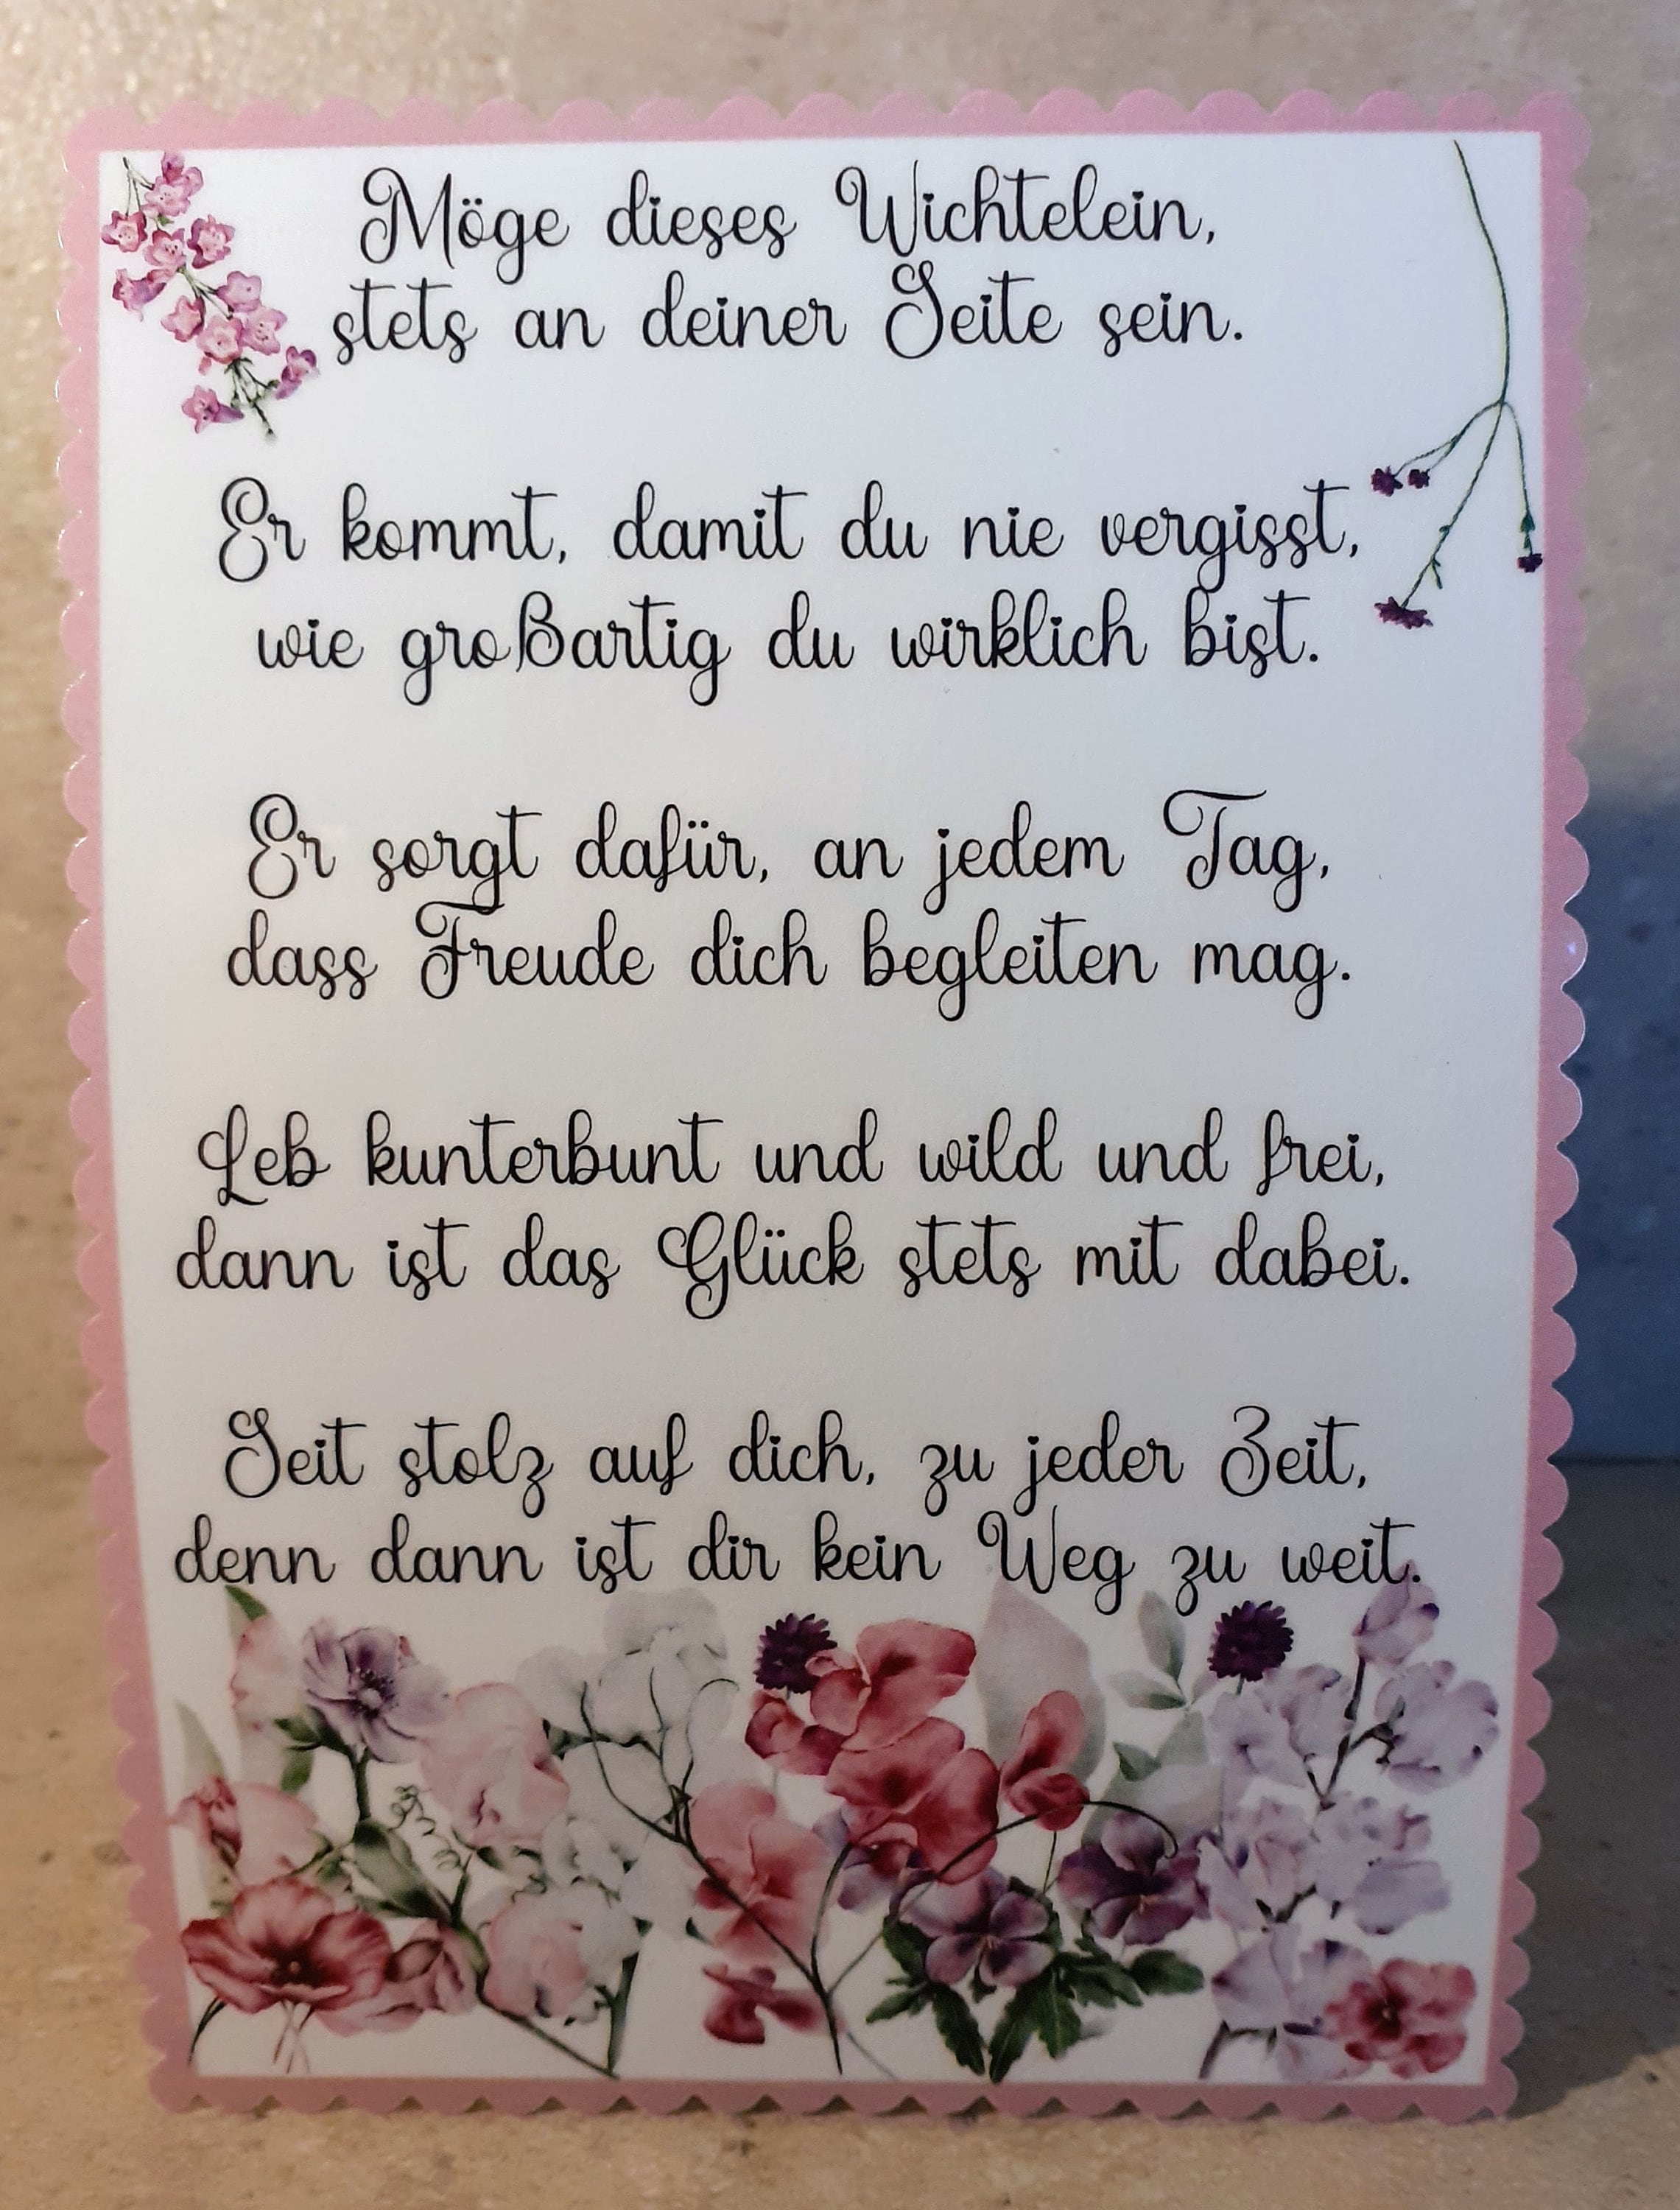 Möge dieses Wichtelein,
stets an deiner Seite sein.
Er kommt, damit du nie vergisst,
wie großartig du wirklich bist.
Er sorgt dafür, an jedem Tag,
dass Freude dich begleiten mag.
Leb kunterbunt und wild und frei,
dann ist das Glück stets mit dabei.
Seit stolz auf dich, zu jeder Zeit,
denn dann ist dir kein Weg zu weit.